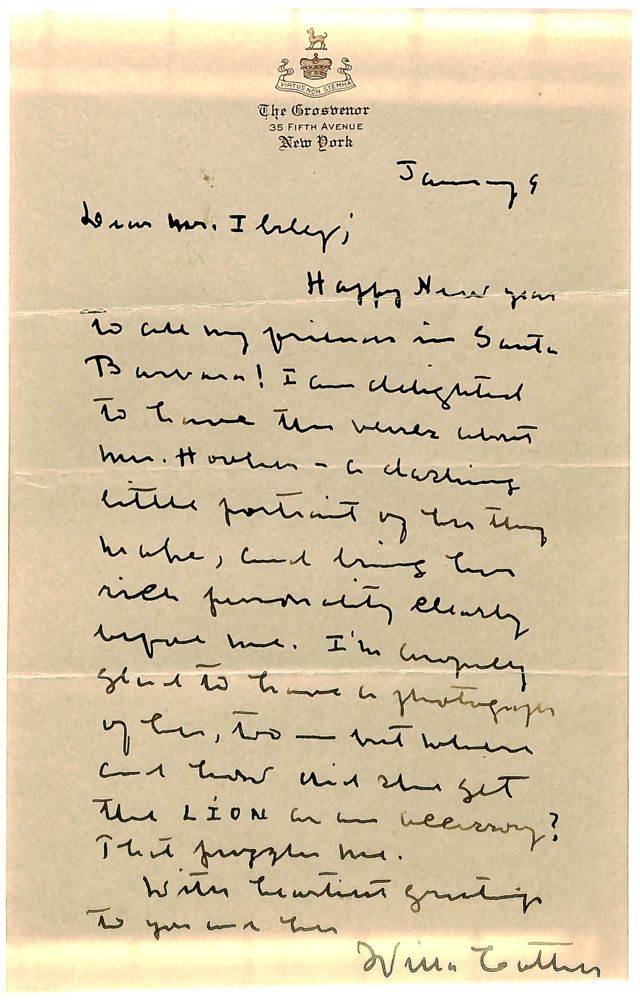 VIRTUS NON STEMMA
The Grosvenor
35 FIFTH AVENUE
New York
January 9
Dear Mr. Ilsley;
Happy New year
to all my friends in Santa
Barbara! I am delighted
to have the verses about
Mrs. Hooker - a dashing
little portrait of her they
make, and bring her
rich personality clearly
before me. I'm awfully
glad to have a photograph
of her, too — but where
and how did she get
the LION as an accessory?
That puzzles me.
With heartiest greetings
to you and her
Willa Cather